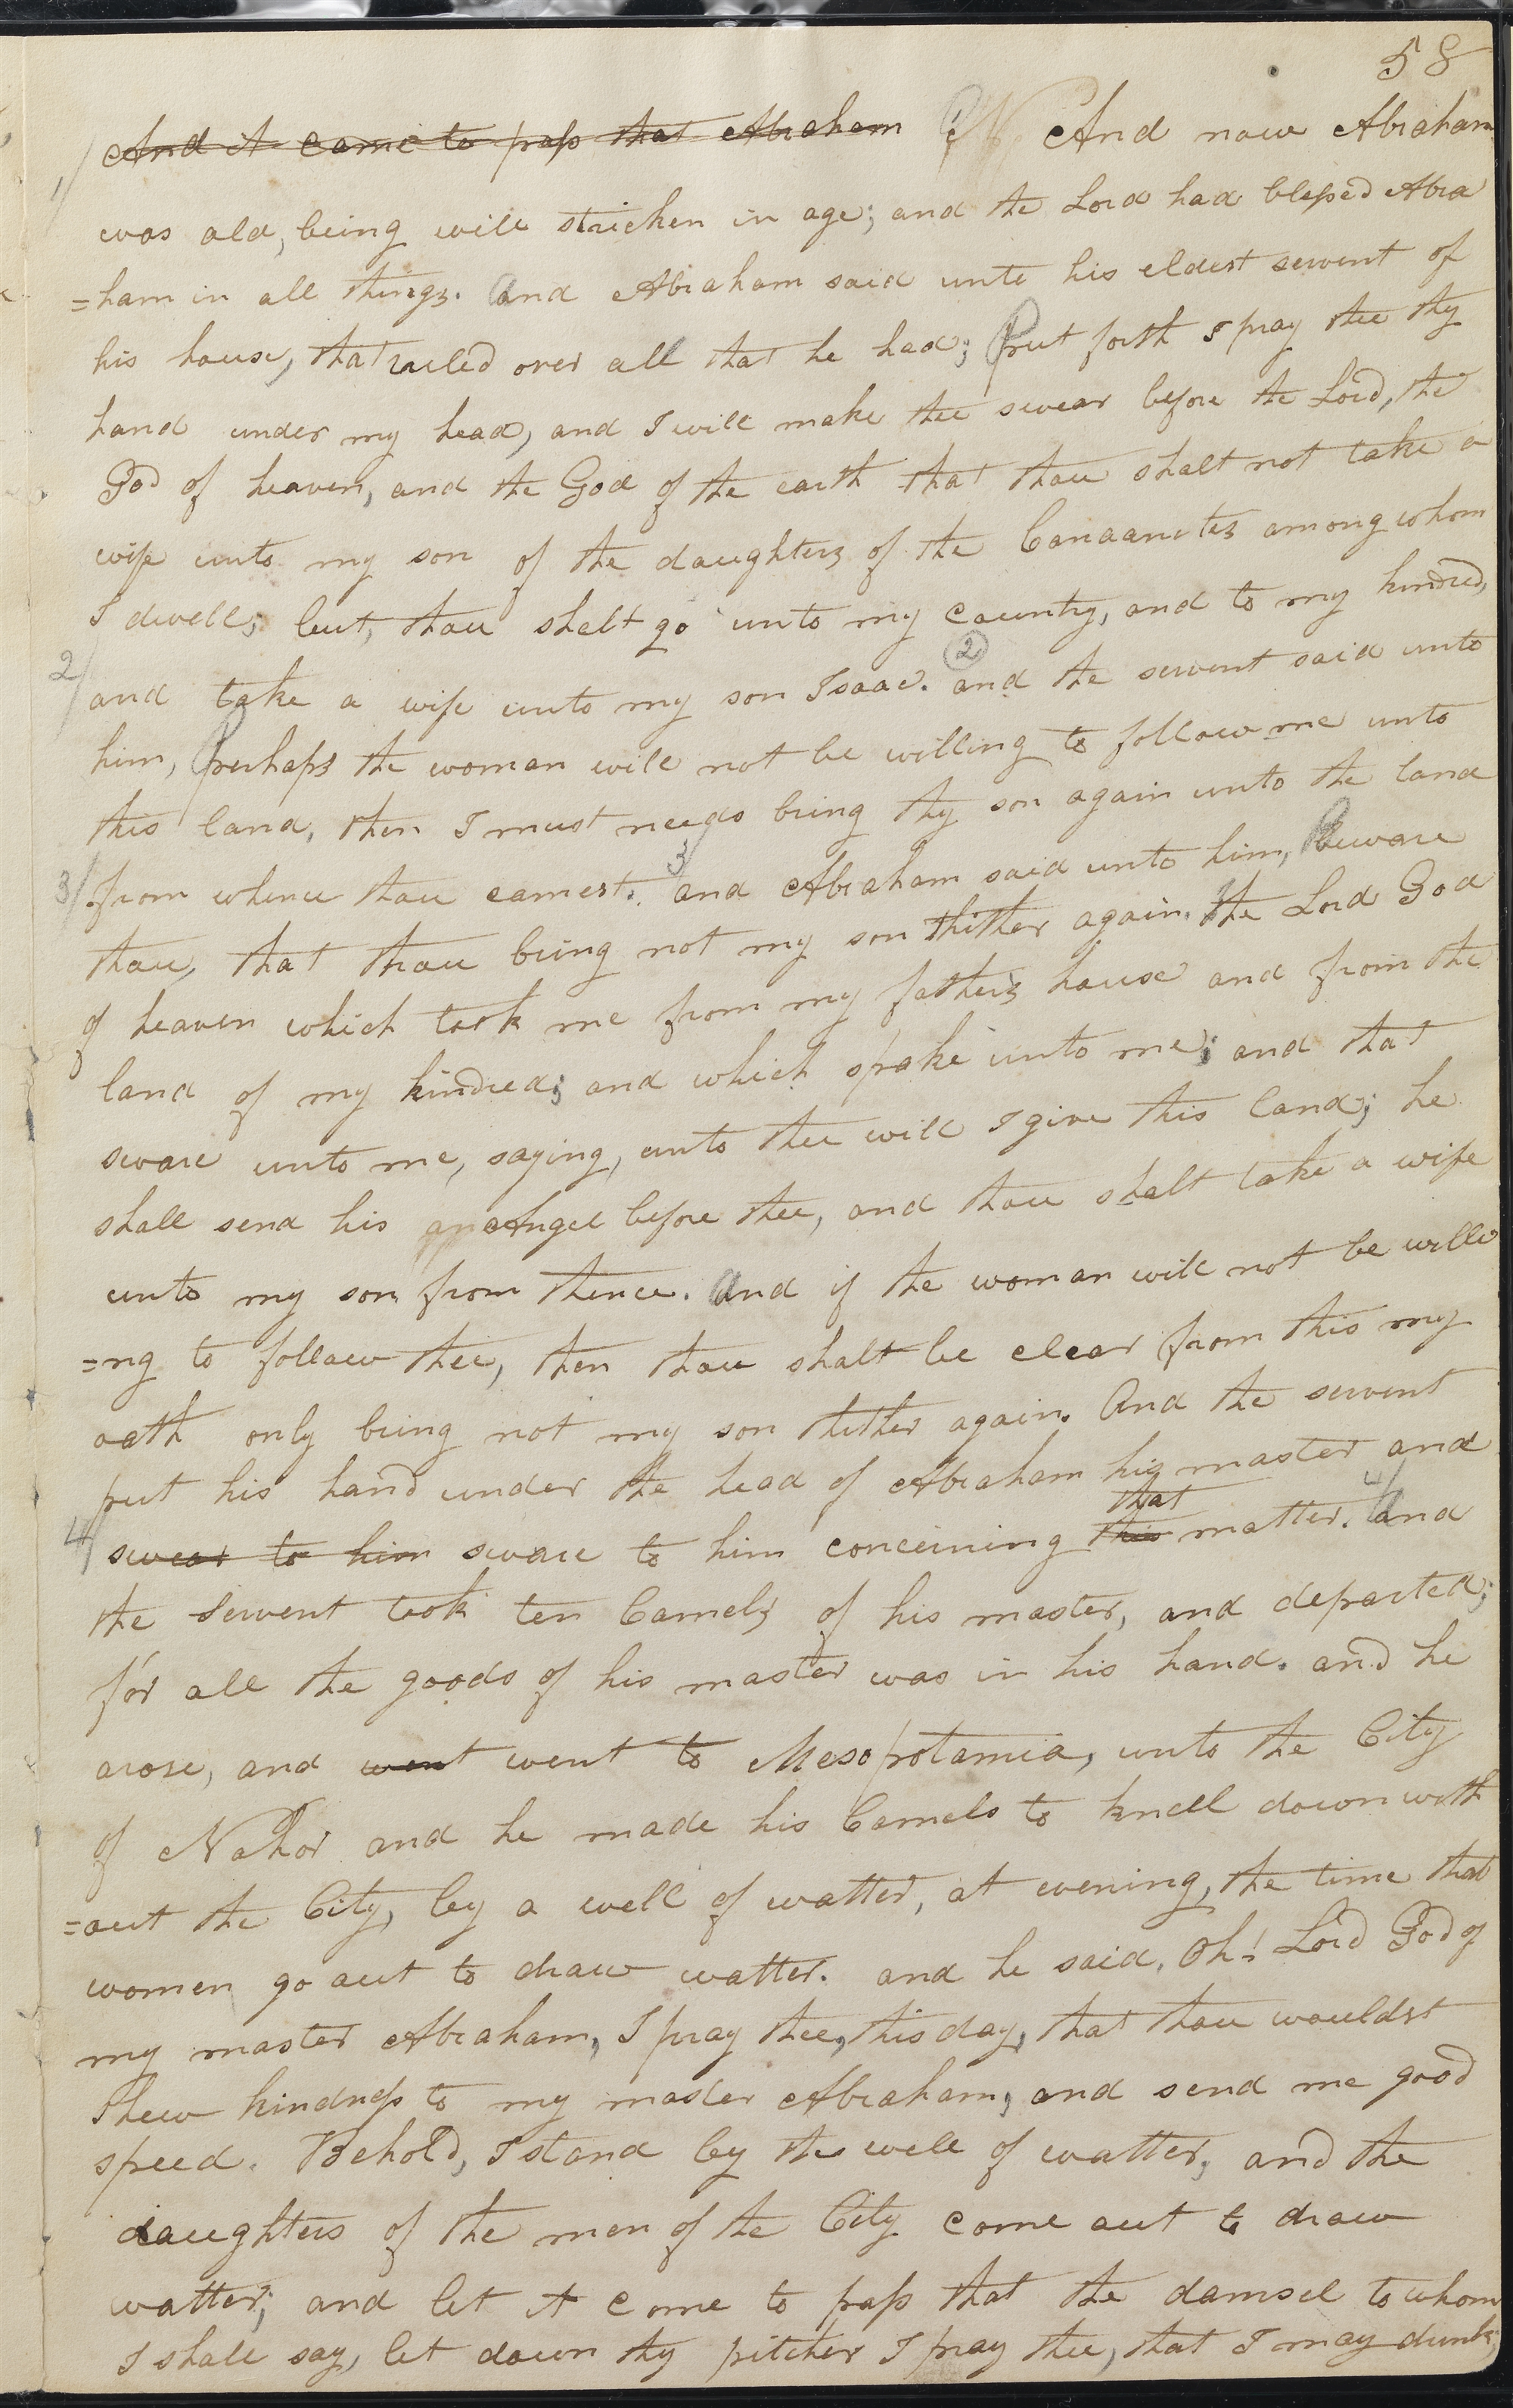 58
1/ And it came to pass that Abraham And now Abraham
was old, being well stricken in age; and the Lord had blessed Abra
=ham in all things. And Abraham said unto his eldest servent of
his house, that ruled over all that he had; Put forth I pray thee thy
hand under my head, and I will make thee swear before the Lord, the
God of heaven, and the God of the earth that thou shalt not take a
wife unto my son of the daughters of the Canaanites among whom
I dwell; but, thou shalt go unto my country, and to my kindred,
2/ and take a wife unto my son Isaac. 2 and the servent said unto
him, Perhaps the woman will not be willing to follow me unto
this land, then I must needs bring thy son again unto the land
3/ from whence thou camest. 3/ and Abraham said unto him, Beware
thou, that thou bring not my son thither again. The Lord God
of heaven which took me from my father's house and from the
land of my kindred; and which spake unto me; and that
sware unto me, saying, unto thee will I give this land; he
shall send his Angel before thee, and thou shalt take a wife
unto my son from thence. And if the woman will not be willi
=ng to follow thee, then thou shalt be clear from this my
oath only bring not my son thither again. And the servent
put his hand under the head of Abraham his master and
that
4/ swear to him sware to him concerning this matter. 4/ And
the servent took ten Camels of his master, and departed;
for all the goods of his master was in his hand. and he
arose, and went went to Mesopotamia, unto the City
of Nahor and he made his Camels to kneel down with
=out the City, by a well of watter, at evening, the time that
women go out to draw watter. and he said, Oh! Lord God of
my master Abraham, I pray thee, this day, that thou wouldst
shew kindness to my master Abraham, and send me good
speed. Behold, I stand by the well of watter; and the
daughters of the men of the City come out to draw
watter; and let it come to pass that the damsel to whom
I shall say, let down thy pitcher I pray thee, that I may drink;